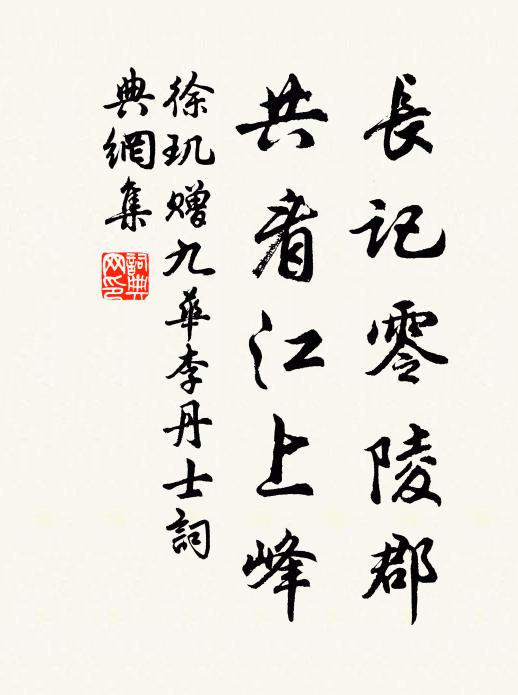 長記零陵郡
共看江上峰
徐玑赠九華李丹士詞
典網集
詞典网印